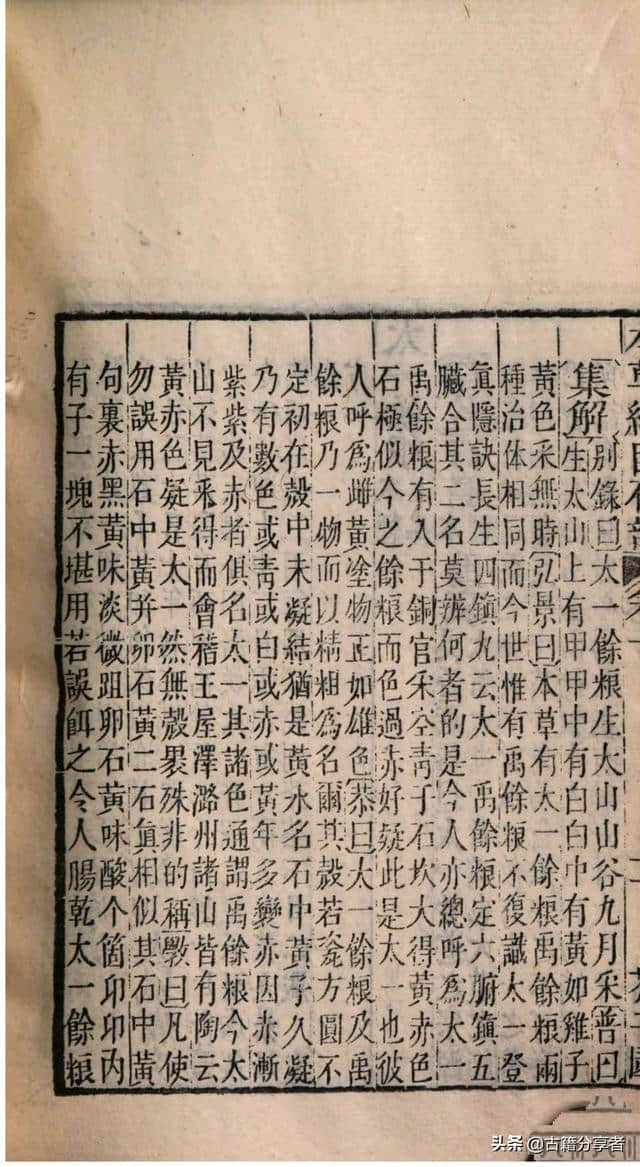 集解別錄曰太一餘粮生太山山谷九月采普曰
生太山上有甲甲中有白白中有黃如雞子
黃色采無時弘景曰本草有太一餘粮禹餘粮兩
種治体相同而今世惟有禹餘粮不復識太一登
眞隱訣長生四鎭丸云太一禹餘粮定六腑鎭五
臟合其二名莫辨何者的是今人亦總呼爲太一
禹餘粮有入于銅官采空靑于石坎大得黃赤色
石極似今之餘粮而色過赤好疑此是太一也彼
人呼爲雌黃塗物正如雄色恭曰太一餘粮及禹
餘粮乃一物而以精粗爲名爾其殼若瓷方圓不
定初在殼中未凝結猶是黃水名石中黃子久凝
乃有數色或靑或白或赤或黃年多變赤因赤漸
紫紫及赤者俱名太一其諸色通謂禹餘粮今太
山不見采得而會稽王屋澤潞州諸山皆有陶云
黃赤色疑是太一然無殼褁殊非的稱斅曰凡使
勿誤用石中黃并卵石黃二石眞相似其石中黃
句裏赤黑黃味淡微跙卵石黃味酸个箇卵卵內
有子一塊不堪用若誤餌之令人腸乾太一餘粮
头条 @古籍分享者